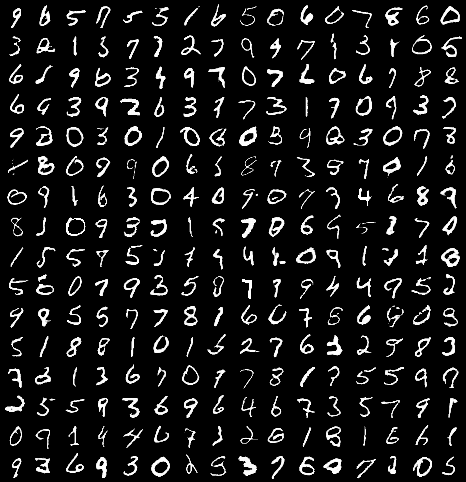 9 6 5 7 5 3 1 6 5 0 6 0 7 8 6 0
3 2 1 3 7 7 2 7 9 4 7 1 3 1 0 5
6 5 9 6 3 4 9 7 0 7 6 0 6 7 8 8
6 9 3 9 2 6 3 7 7 3 1 7 0 9 3 7
9 3 0 3 0 1 0 8 0 3 9 8 3 0 7 3
1 8 0 9 9 0 6 5 8 9 3 5 7 0 1 6
0 9 1 6 3 0 4 0 9 0 7 3 4 6 8 9
8 5 0 9 3 0 1 5 7 0 6 9 5 1 7 0
1 5 5 7 5 7 9 4 1 0 9 1 1 8
5 5 0 7 9 3 5 8 7 7 9 4 4 9 5 2
9 8 5 5 7 7 8 1 6 0 7 8 6 9 0 9
5 1 8 8 1 0 1 5 2 7 6 3 2 9 8 3
7 3 1 3 6 7 0 9 7 8 1 7 5 5 9 7
2 5 5 9 3 6 9 6 4 6 7 3 5 7 9 1
0 9 1 4 4 6 7 3 2 6 1 8 1 6 6 1
9 3 6 9 3 0 2 9 3 7 6 0 7 3 0 5